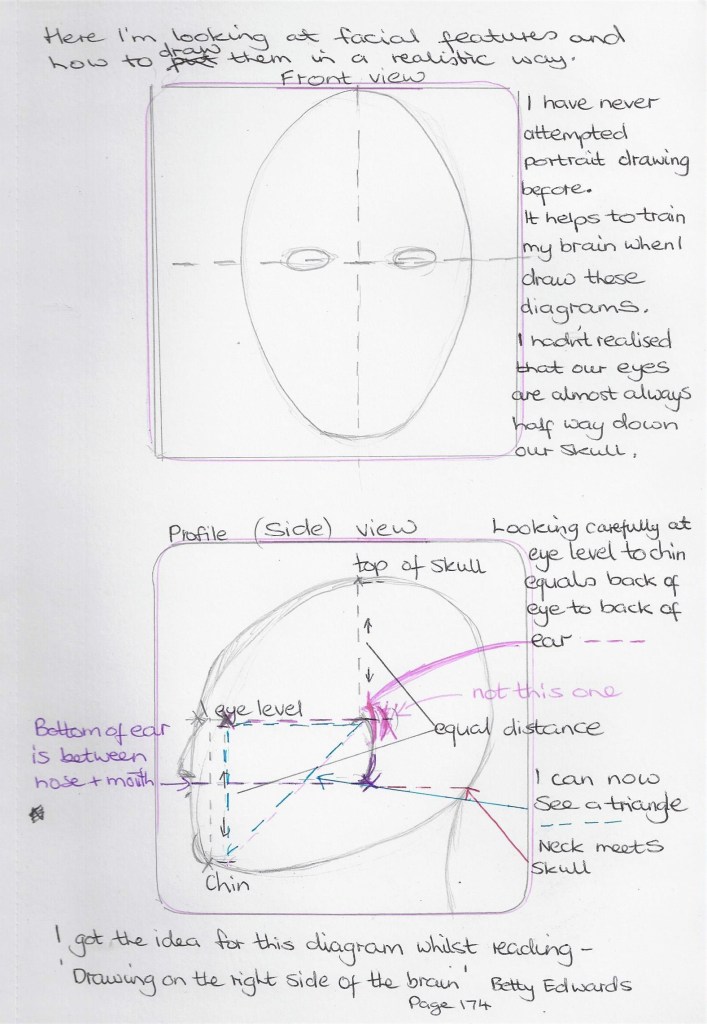 Here I'm looking at facial features and
how to draw them in a realistic way.
Front view
I have never
attempted
portrait drawing
before.
It helps to train
my brain when I
draw these
diagrams.
I hadn't realised
that our eyes
are almost always
half way down
our skull.
Profile (side) view
Looking carefully at
eye level to chin
equals back of
eye to back of
ear
top of skull
not this one
eye level
equal distance
Bottom of ear
is between
nose + mouth
I can now
see a triangle
Neck meets
skull
Chin
I got the idea for this diagram whilst reading -
'Drawing on the right side of the brain' Betty Edwards
Page 174